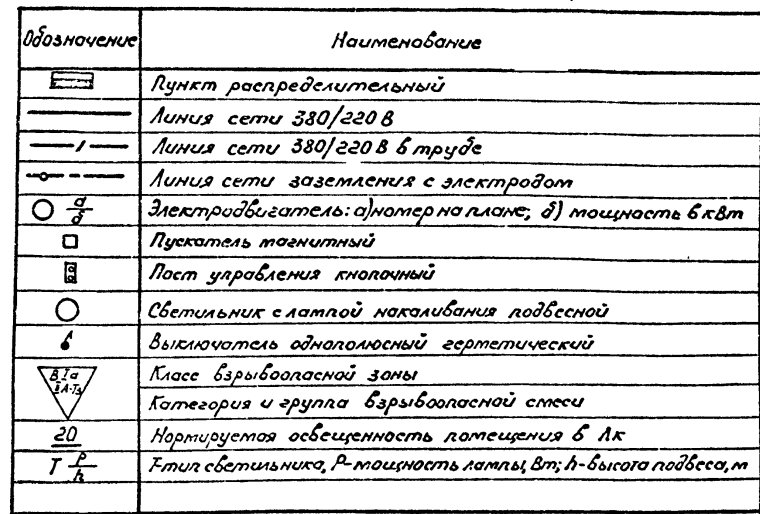 Обозначение Наименование
Пункт распределительный
Линия сети 380/220 В
Линия сети 380/220 В в трубе
Линия сети заземления с электродом
а/б Электродвигатель: а) номер на плане; б) мощность в кВт
Пускатель магнитный
Пост управления кнопочный
Светильник с лампой накаливания подвесной
Выключатель однополюсный герметический
В-Iа Класс взрывоопасной зоны
IIА-Т3 Категория и группа взрывоопасной смеси
20 Нормируемая освещенность помещения в Лк
Т Р/h Т-тип светильника, Р-мощность лампы, Вт; h-высота подвеса, м